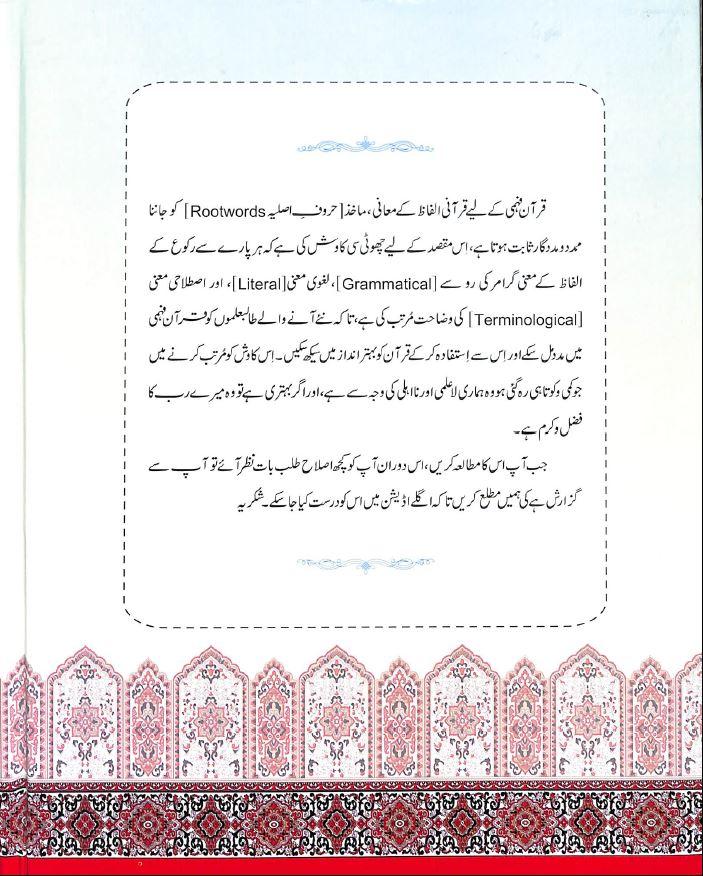 قرآن فہمی کے لیے قرآنی الفاظ کے معانی، ماخذ [حروفِ اصلیہ Rootwords] کو جاننا
ممد و مددگار ثابت ہوتا ہے، اس مقصد کے لیے چھوٹی سی کاوش کی ہے کہ ہر پارے سے رکوع کے
الفاظ کے معنی گرامر کی رو سے [Grammatical]، لغوی معنی [Literal]، اور اصطلاحی معنی
[Terminological] کی وضاحت مُرتب کی ہے، تاکہ نئے آنے والے طالبعلموں کو قرآن فہمی
میں مدد مل سکے اور اِس سے اِستفادہ کر کے قرآن کو بہتر انداز میں سیکھ سکیں۔ اِس کاوش کو مُرتب کرنے میں
جو کمی و کوتاہی رہ گئی ہو وہ ہماری لاعلمی اور نااہلی کی وجہ سے ہے، اور اگر بہتری ہے تو وہ میرے رب کا
فضل و کرم ہے۔
جب آپ اس کا مطالعہ کریں، اس دوران آپ کو کچھ اصلاح طلب بات نظر آئے تو آپ سے
گزارش ہے کی ہمیں مطلع کریں تاکہ اگلے اڈیشن میں اس کو درست کیا جا سکے۔ شکریہ